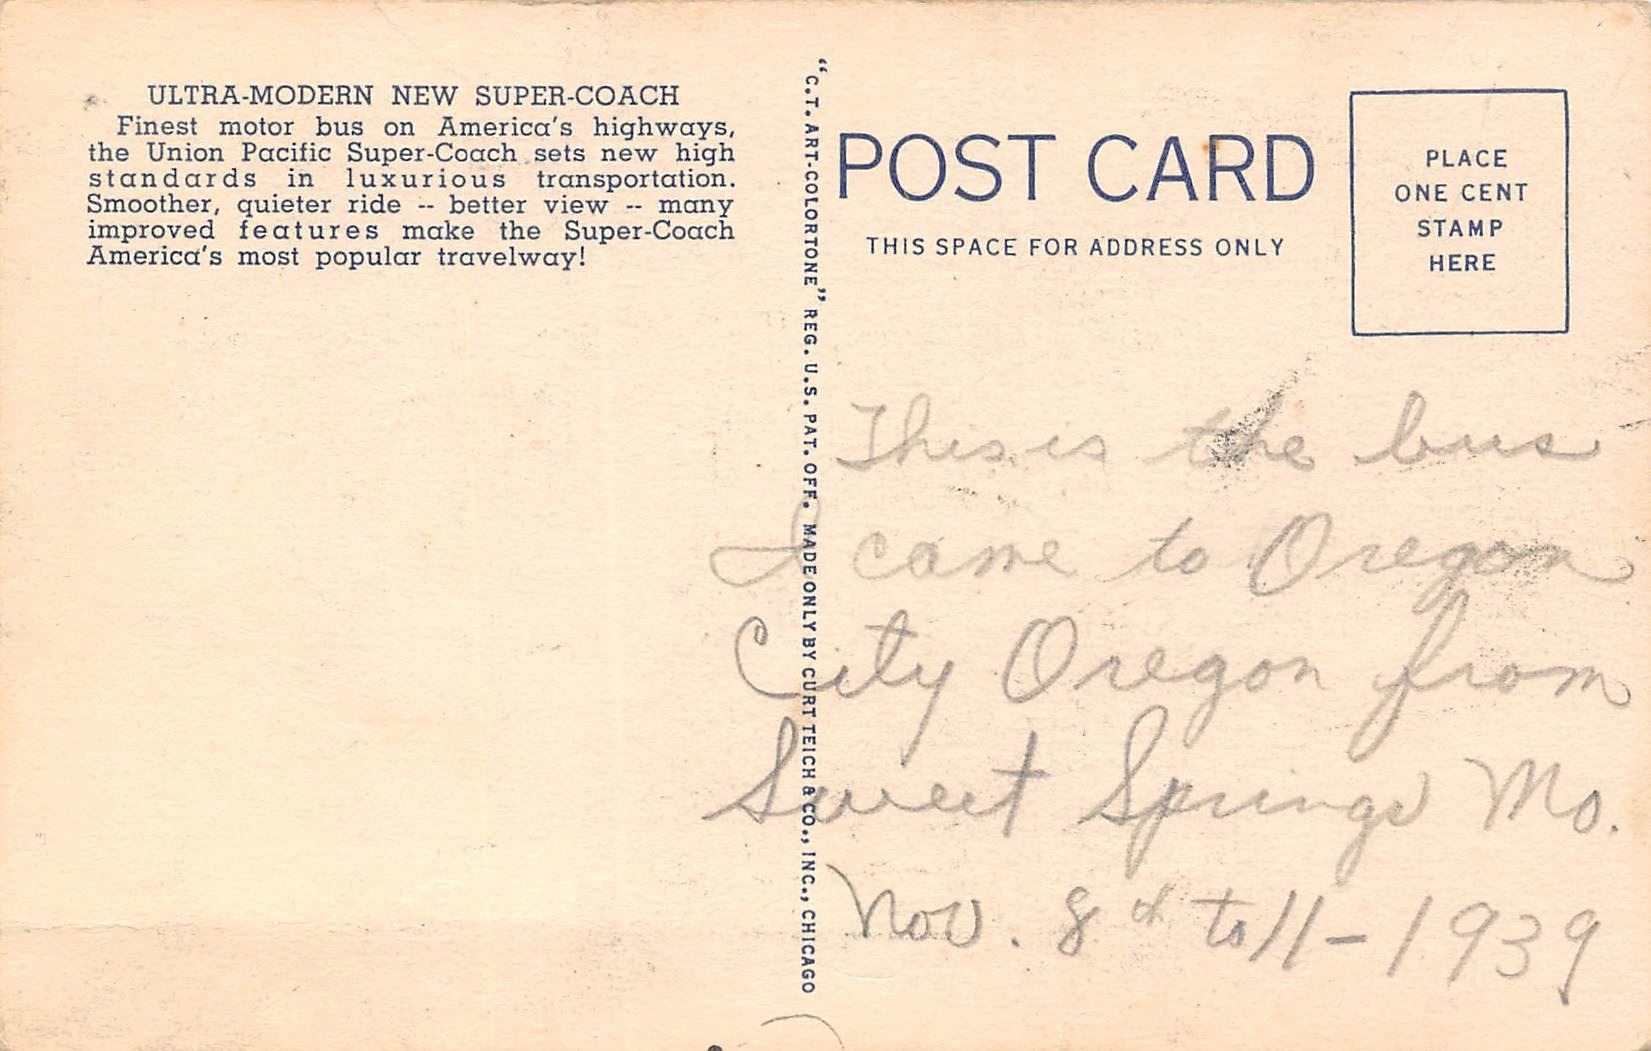 ULTRA-MODERN NEW SUPER-COACH
Finest motor bus on America's highways,
the Union Pacific Super-Coach sets new high
standards in luxurious transportation.
Smoother, quieter ride -- better view -- many
improved features make the Super-Coach
America's most popular travelway!
"C.T. ART-COLORTONE" REG. U.S. PAT. OFF. MADE ONLY BY CURT TEICH & CO., INC., CHICAGO
POST CARD
THIS SPACE FOR ADDRESS ONLY
PLACE
ONE CENT
STAMP
HERE
This is the bus
I came to Oregon
City Oregon from
Sweet Springs Mo.
Nov. 8th to 11 - 1939